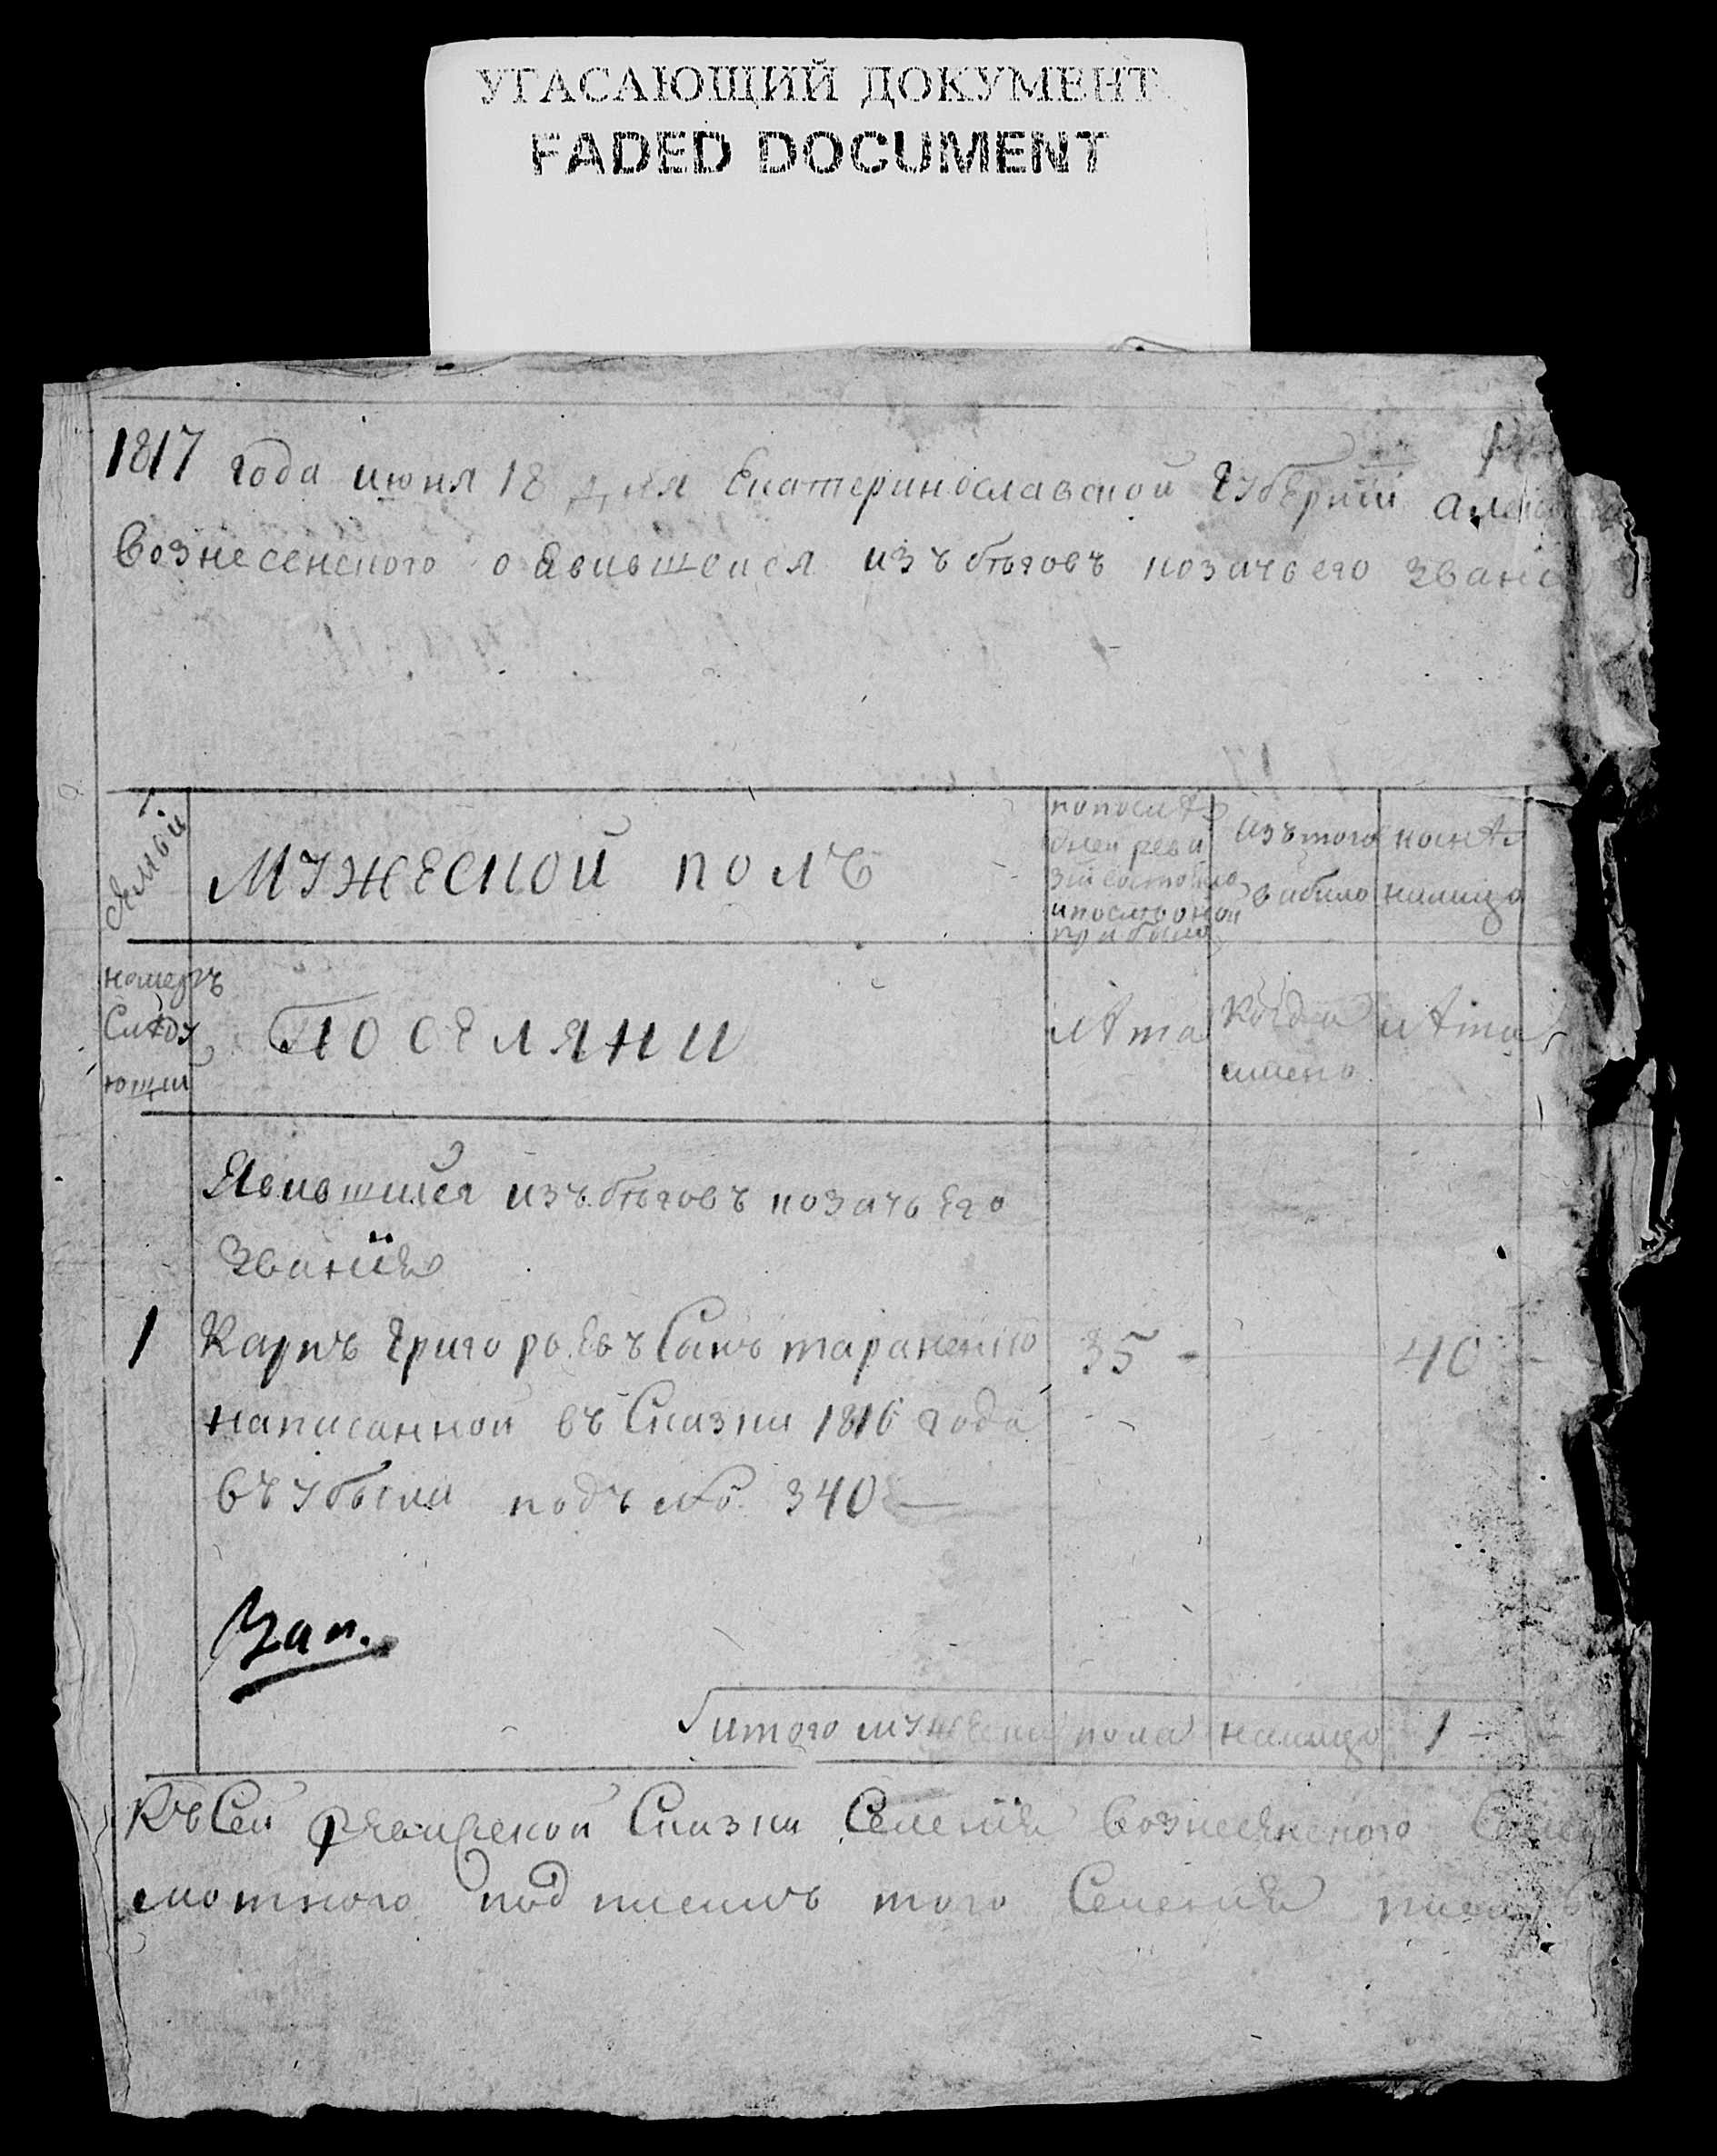 УГАСАЮЩИЙ ДОКУМЕНТ
FADED DOCUMENT
1817 года июня 18 дня Екатеринославской Губернии
Вознесенского о явившемся изъ бѣговъ козачьего
Мужеской полъ
по послѣ
дней реви
зіи состояло
и после оной
прибыло
Изъ того
выбыло
нынѣ
налицо
номеръ
Слѣду
ющии
Поселяни
лѣта
Когда
имено
лѣта
Явившийся изъ бѣговъ козачьего
званія
1 Карпъ Григорьевъ Сынъ тараненко 35 - 40 -
написанной въ Сказки 1816 года
въ убыли подъ № 340
Зап.
итого мужеска пола налицо 1 -
Къ Сей ревизской Сказки Селенія Вознесенского
того Селенія